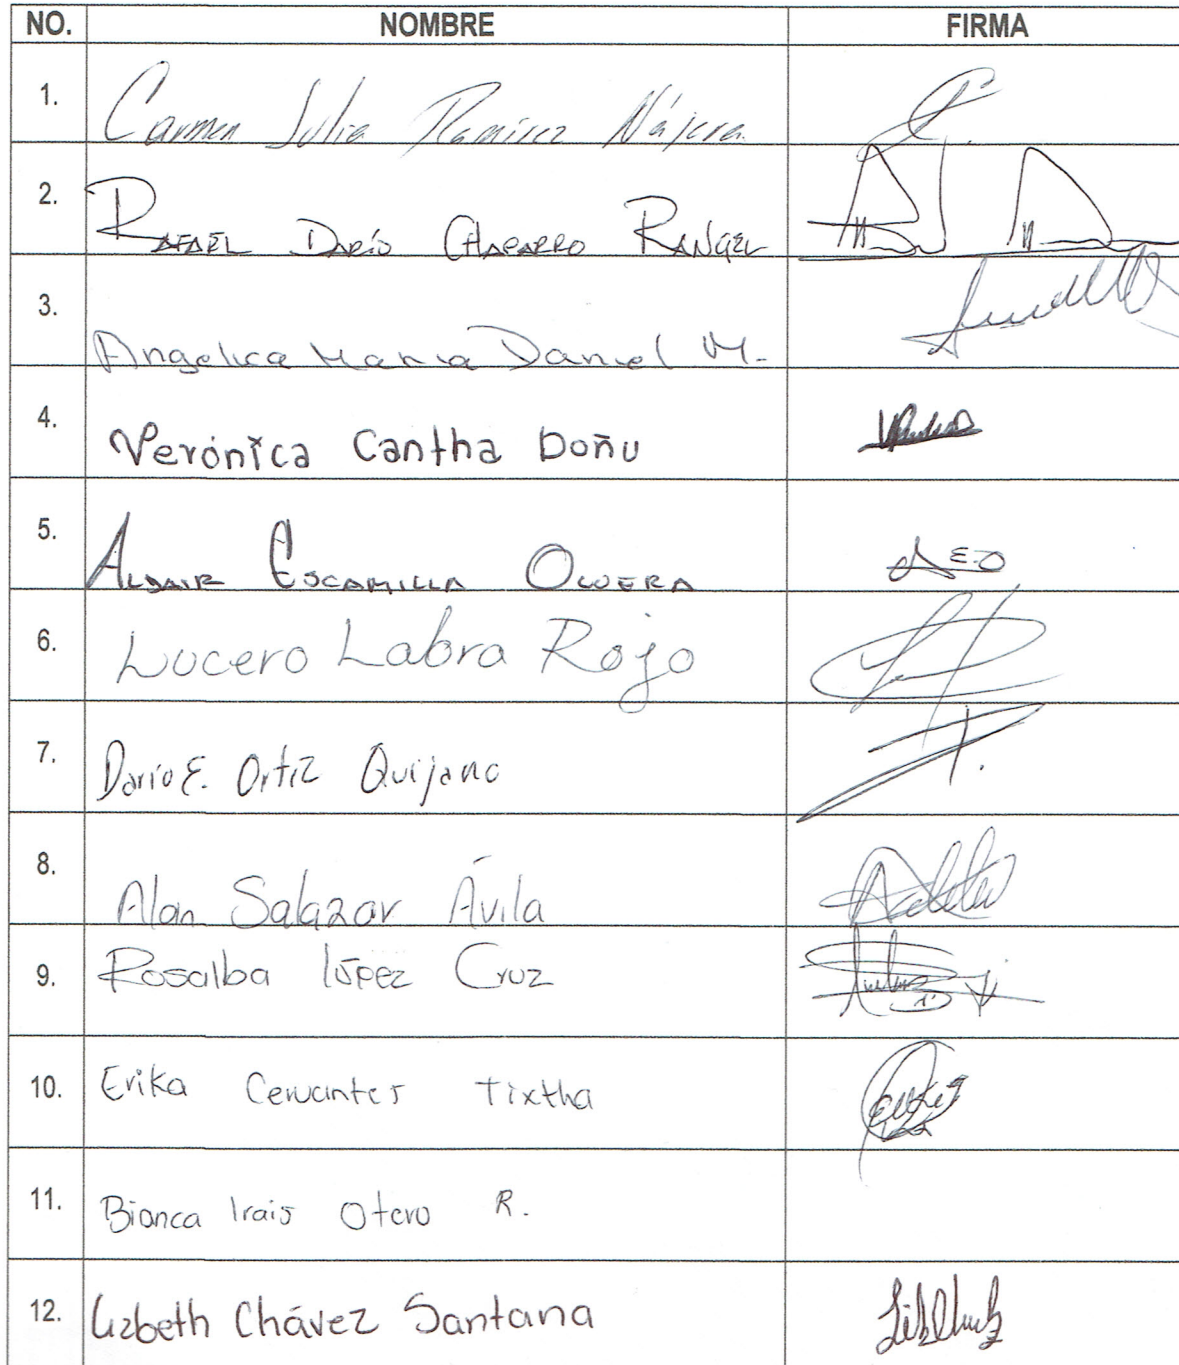 NO. NOMBRE FIRMA
1. Carmen Julia Ramírez Nájera
2. RAFAEL DARÍO CHAPARRO RANGEL
3. Angelica Maria Daniel M.
4. Verónica Cantha Doñu
5. ALDAIR ESCAMILLA OLVERA A E.O
6. Lucero Labra Rojo
7. Darío E. Ortiz Quijano
8. Alan Salazar Ávila
9. Rosalba lópez Cruz
10. Erika Cervantes Tixtha
11. Bianca Irais Otero R.
12. Lizbeth Chávez Santana